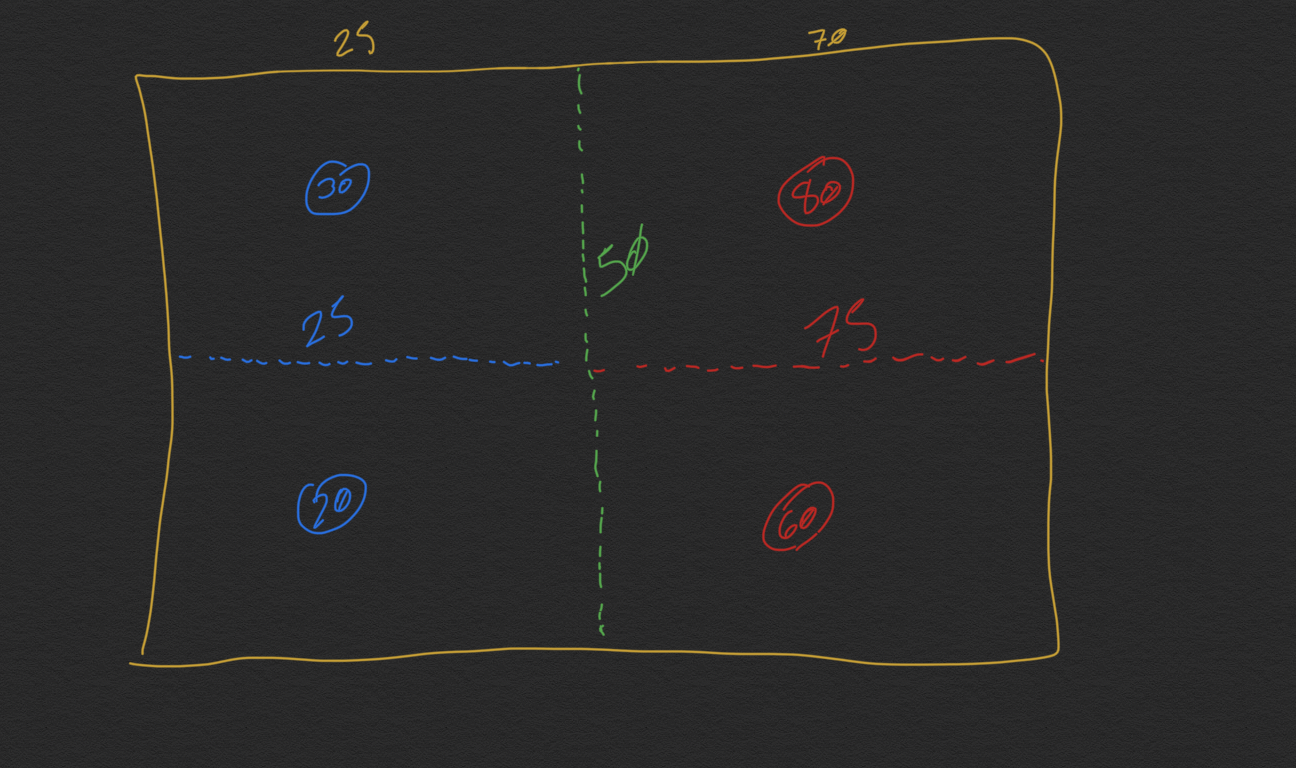 25 70
30 80
50
25 75
20 60